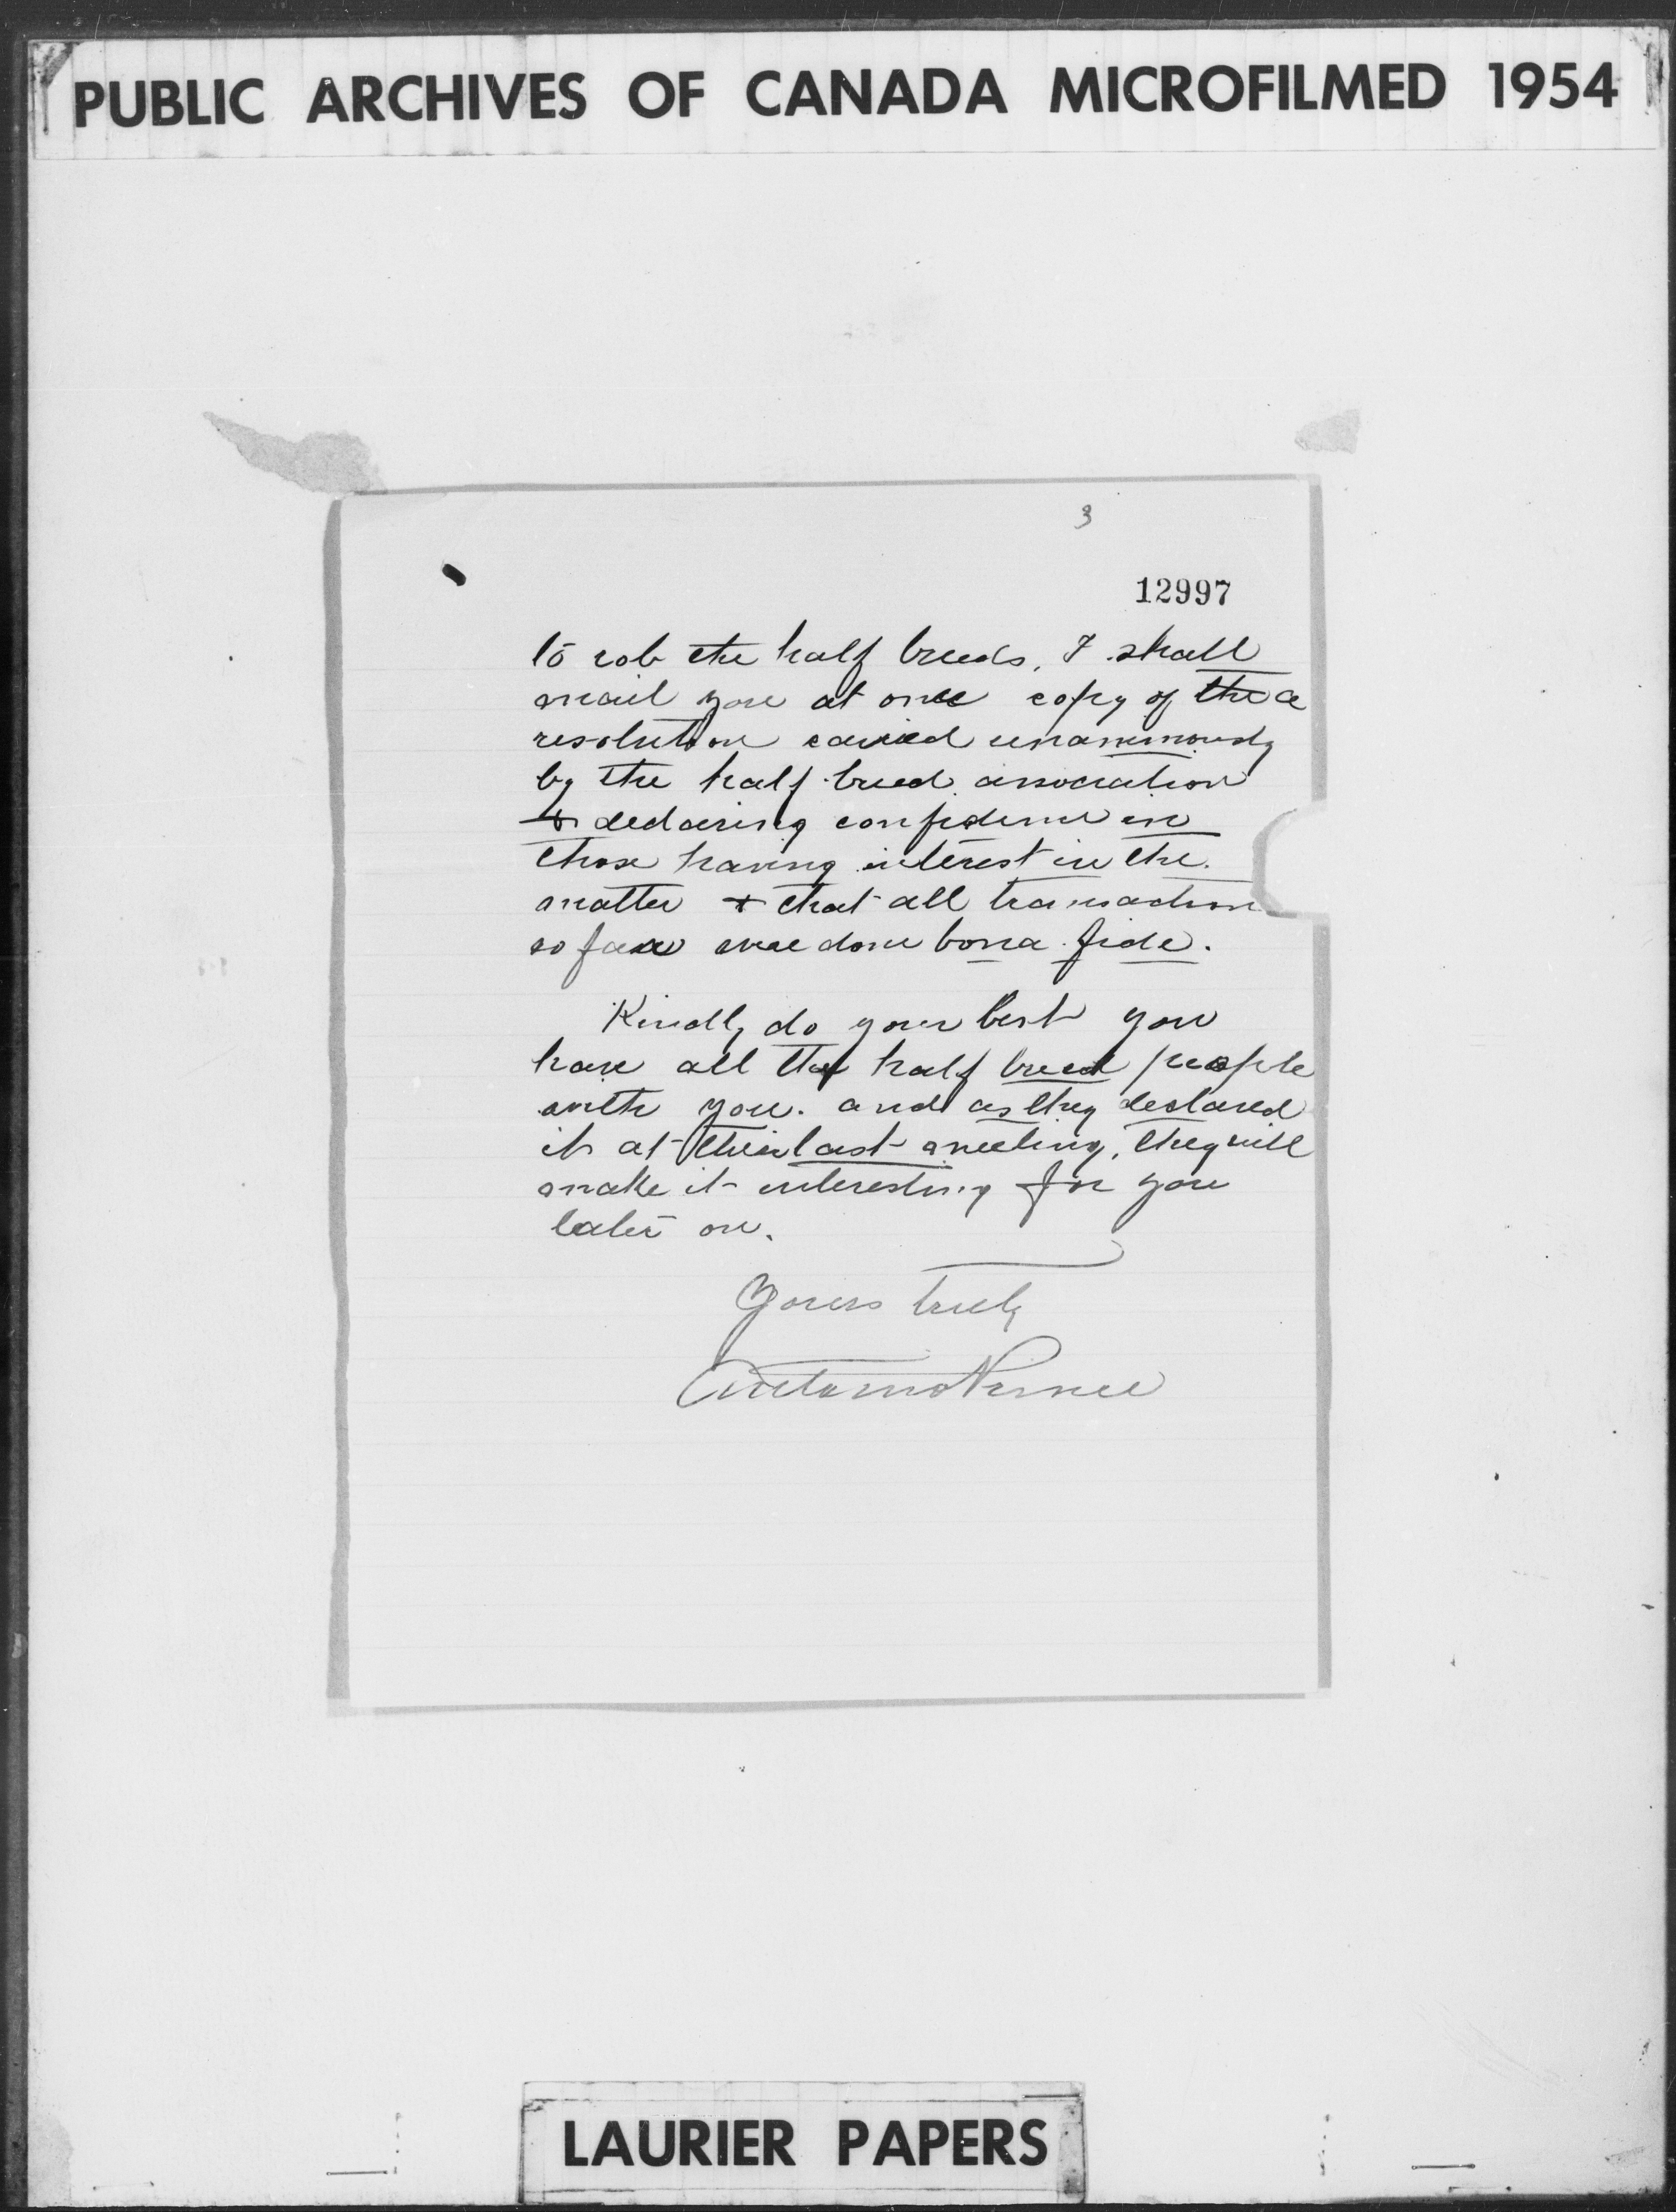 PUBLIC ARCHIVES OF CANADA MICROFILMED 1954
3
12997
to rob the half breeds. I shall
mail you at once copy of the a
resolution carried unanimously
by the half breed association
& declaring confidence in
those having interest in the
matter & that all transaction
so far were done bona fide.
Kindly do your best you
have all the half breed people
with you. and as they declared
it at their last meeting, they will
make it interesting for you
later on.
Yours truly
LAURIER PAPERS